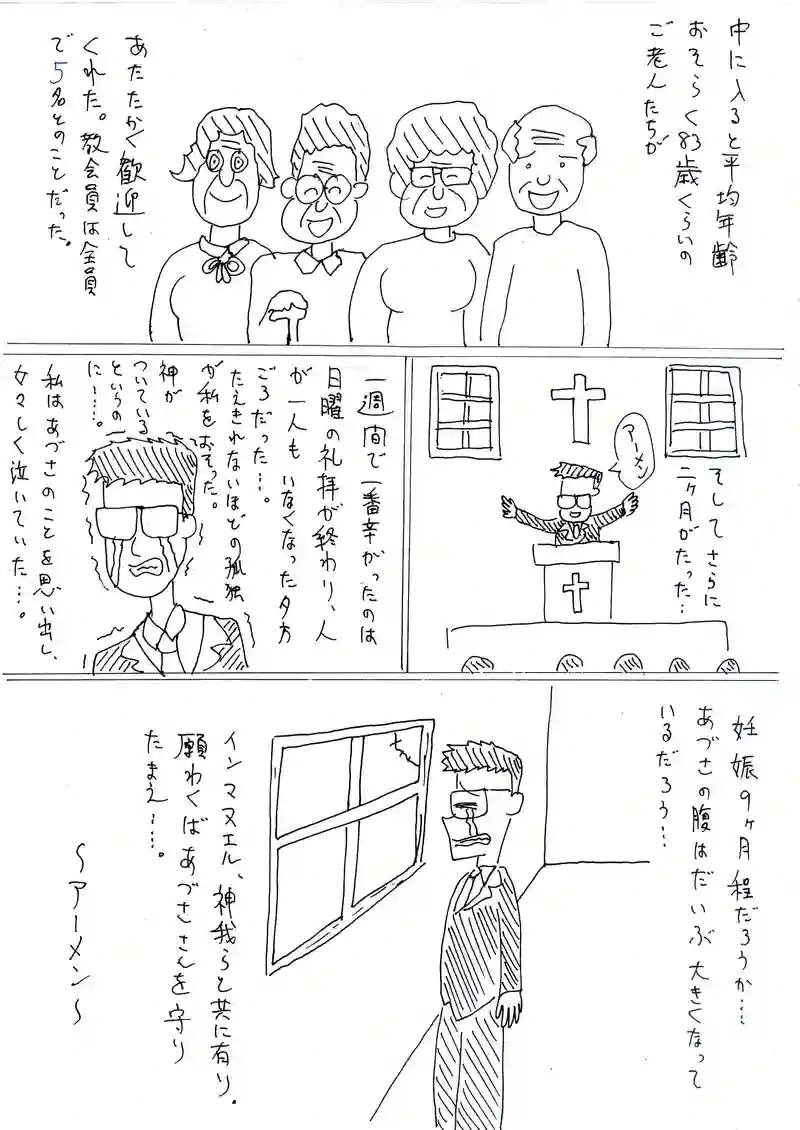 中に入ると平均年齢
おそらく83歳くらいの
ご老人たちが
あたたかく歓迎して
くれた。教会員は全員
で5名とのことだった。
アーメン
そしてさらに
二ヶ月がたった…
一週間で一番辛がったのは
日曜の礼拝が終わり、人
が一人もいなくなった夕方
ごろだった…。
たえきれないほどの孤独
が私をおそった。
神が
ついている
というのに……。
私はあづさのことを思い出し、
女々しく泣いていた…。
妊娠9ヶ月程だろうか……
あづさの腹はだいぶ大きくなって
いるだろう…
インマヌエル、神我らと共に有り。
願わくばあづささんを守り
たまえ……。
～アーメン～